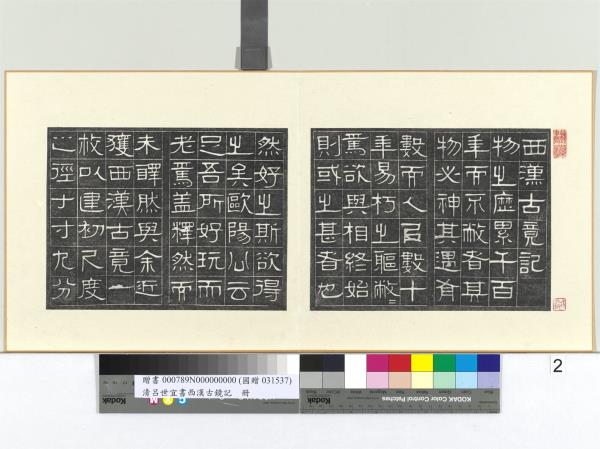 西漢古竟記
物之歷累千百
年而不敝者其
物必神其遇有
數而人㠯數十
年易朽之軀敝〻
焉欲與相終始
則或之甚者也
然好之斯欲得
之矣歐陽公云
足吾所好玩而
老焉蓋釋然而
未釋然與余近
獲西漢古竟一
枚以建初尺度
之徑十寸九分
2
贈書 000789N000000000 (國贈 031537)
清呂世宜書西漢古鏡記 冊
Kodak
KODAK Color Control Patches
Kodak